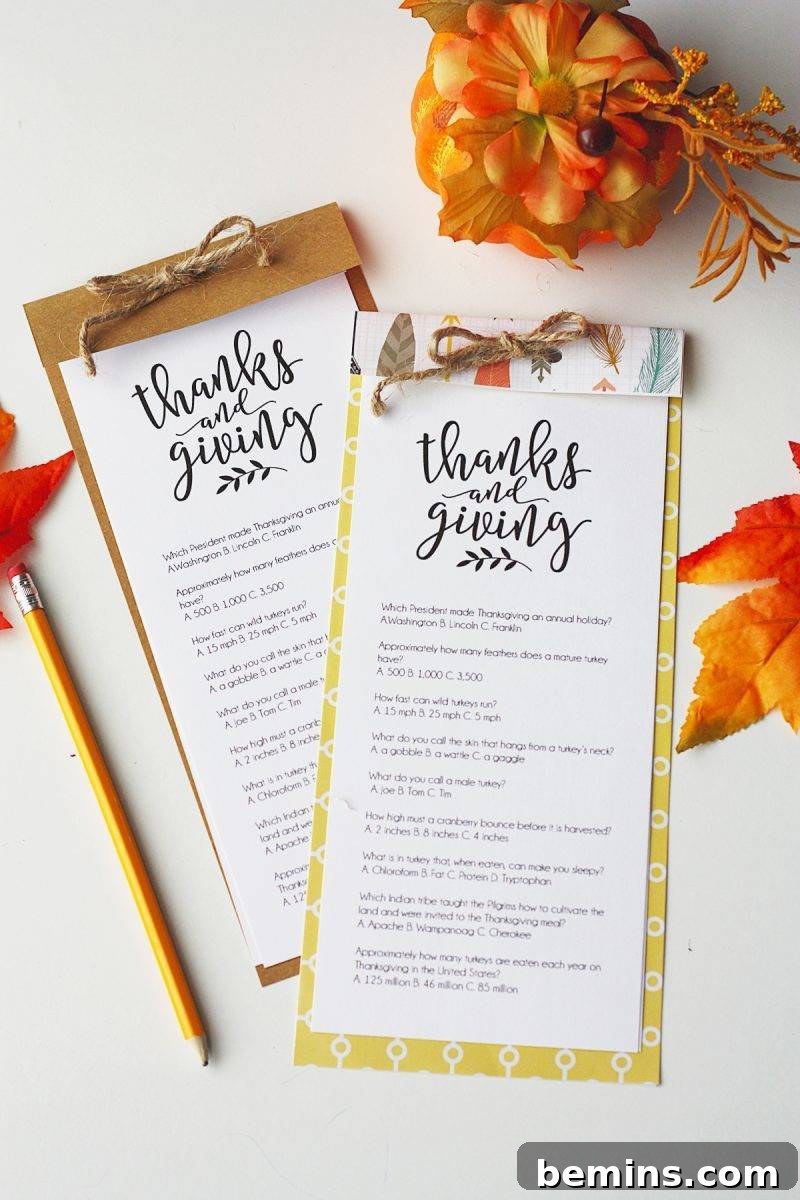 thanks
and
giving
Which President made Thanksgiving an annual
A.Washington B. Lincoln C. Franklin
Approximately how many feathers does a
have?
A. 500 B. 1,000 C. 3,500
How fast can wild turkeys run?
A. 15 mph B. 25 mph C. 5 mph
What do you call the skin that
A. a gobble B. a wattle C. a
What do you call a male
A. joe B. Tom C. Tim
How high must a cranberry
A. 2 inches B. 8 inches
What is in turkey
A. Chloroform B. Fat
Which Indian
land and
A. Apache
thanks
and
giving
Which President made Thanksgiving an annual holiday?
A.Washington B. Lincoln C. Franklin
Approximately how many feathers does a mature turkey
have?
A. 500 B. 1,000 C. 3,500
How fast can wild turkeys run?
A. 15 mph B. 25 mph C. 5 mph
What do you call the skin that hangs from a turkey's neck?
A. a gobble B. a wattle C. a gaggle
What do you call a male turkey?
A. joe B. Tom C. Tim
How high must a cranberry bounce before it is harvested?
A. 2 inches B. 8 inches C. 4 inches
What is in turkey that, when eaten, can make you sleepy?
A. Chloroform B. Fat C. Protein D. Tryptophan
Which Indian tribe taught the Pilgrims how to cultivate the
land and were invited to the Thanksgiving meal?
A. Apache B. Wampanoag C. Cherokee
Approximately how many turkeys are eaten each year on
Thanksgiving in the United States?
A. 125 million B. 46 million C. 85 million
bemins.com